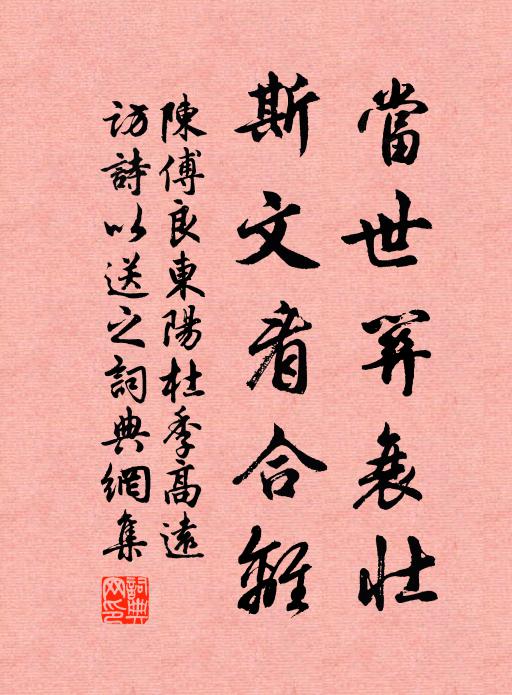 當世算衰壯
斯文看合離
陳傅良東陽杜季高遠
訪詩以送之詞典網集
詞典網印